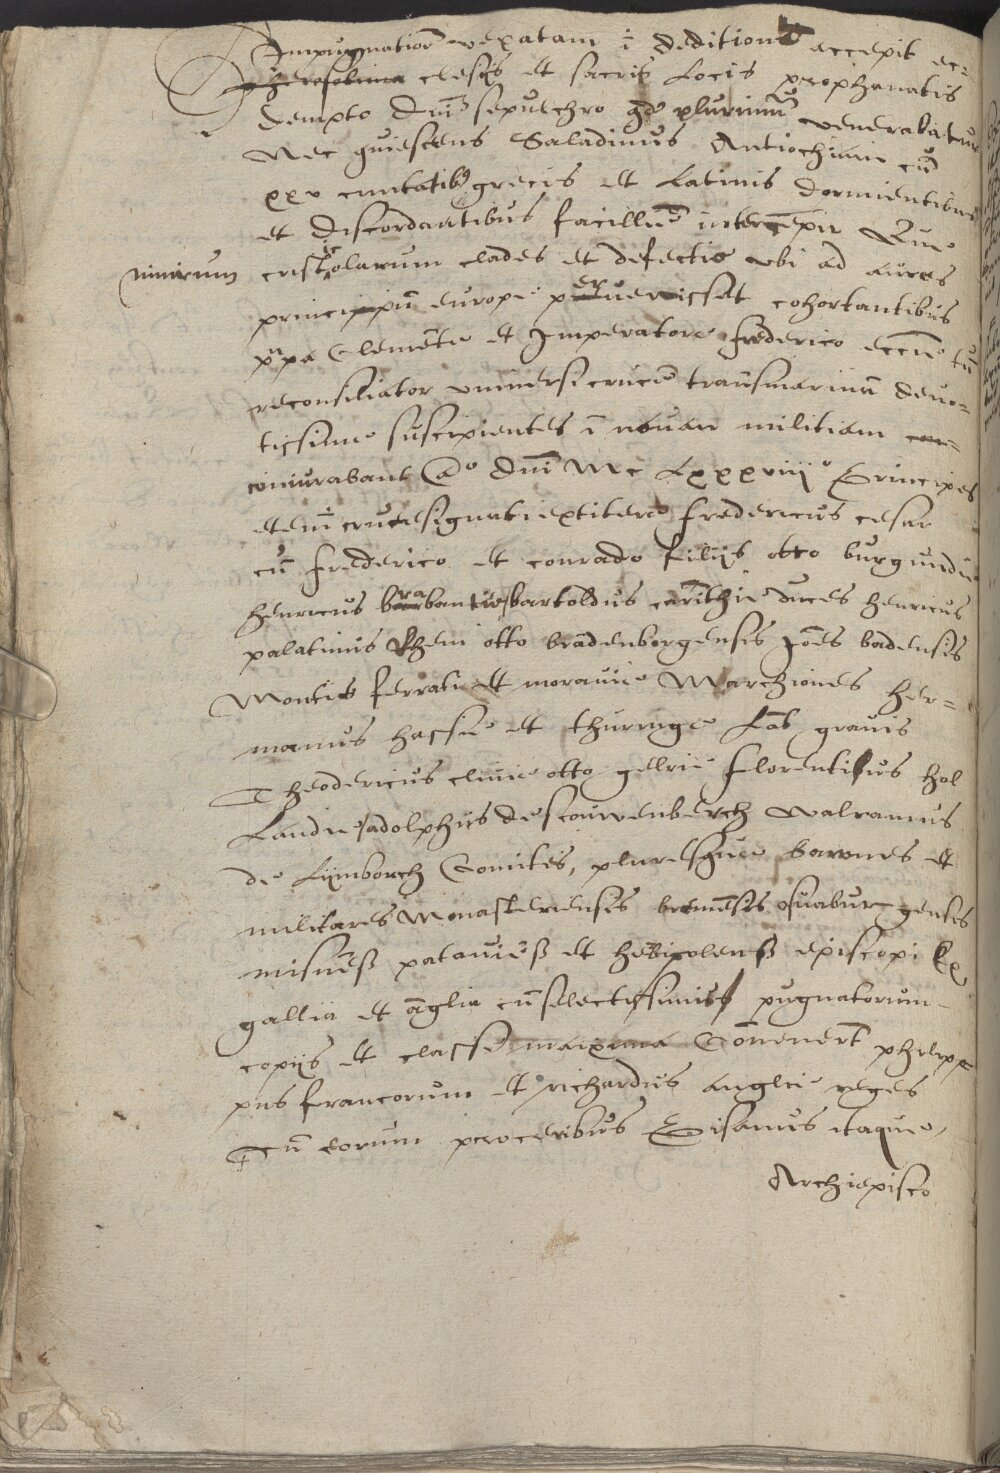 Impugnationē vexatam ī deditionē accepit ec=
clesijs et sacris Locis prophanatis
dempto dnī sepuchro qd̄ plurimū venerabatur
Nec quiescens Saladinus Antiochiam cū
xxv ciuitatib9 grecis et Latinis dormientibus
et discordantibus facillime intercepit Que
nimirum cristicolarum clades et defectio vbi ad aures
principū europe peruenisset cohortantibus
papa Clemēte et Imperatore frederico ecclie tū
reconsiliator vniuersi crucē transmarinā deuo=
tissime suscipientes ī nouam militiam
coniurabant Ao dnī Mc Lxxxviijo Principes
etenī crucesignati extitere fredericus cesar
cū frederico et conrado filijs otto burgundie
Henricus brabantie bartoldus carīthie duces Henricus
palatinus Rheni otto brādenborgensis Joēs badensis
Montis ferrati et morauie Marchiones Her=
manus hassie et thuringe Lāt grauis
Theodericus cliuie otto gellrie florentinus Hol
Landie adolphus de scouwenberch walramus
de Lijmborch Comites, pluresque barones et
militares Monasteriensis bremēsis osnaburgensis
misnēß patauiēß et Hebipolenß episcopi Ex
gallia et āglia cū selectissimis pugnatorum
copijs et classe maxima Cōuenerūt philip=
pus francorum et richardus anglie reges
Cū eorum proceribus Pisanus itaque
Archiepisco